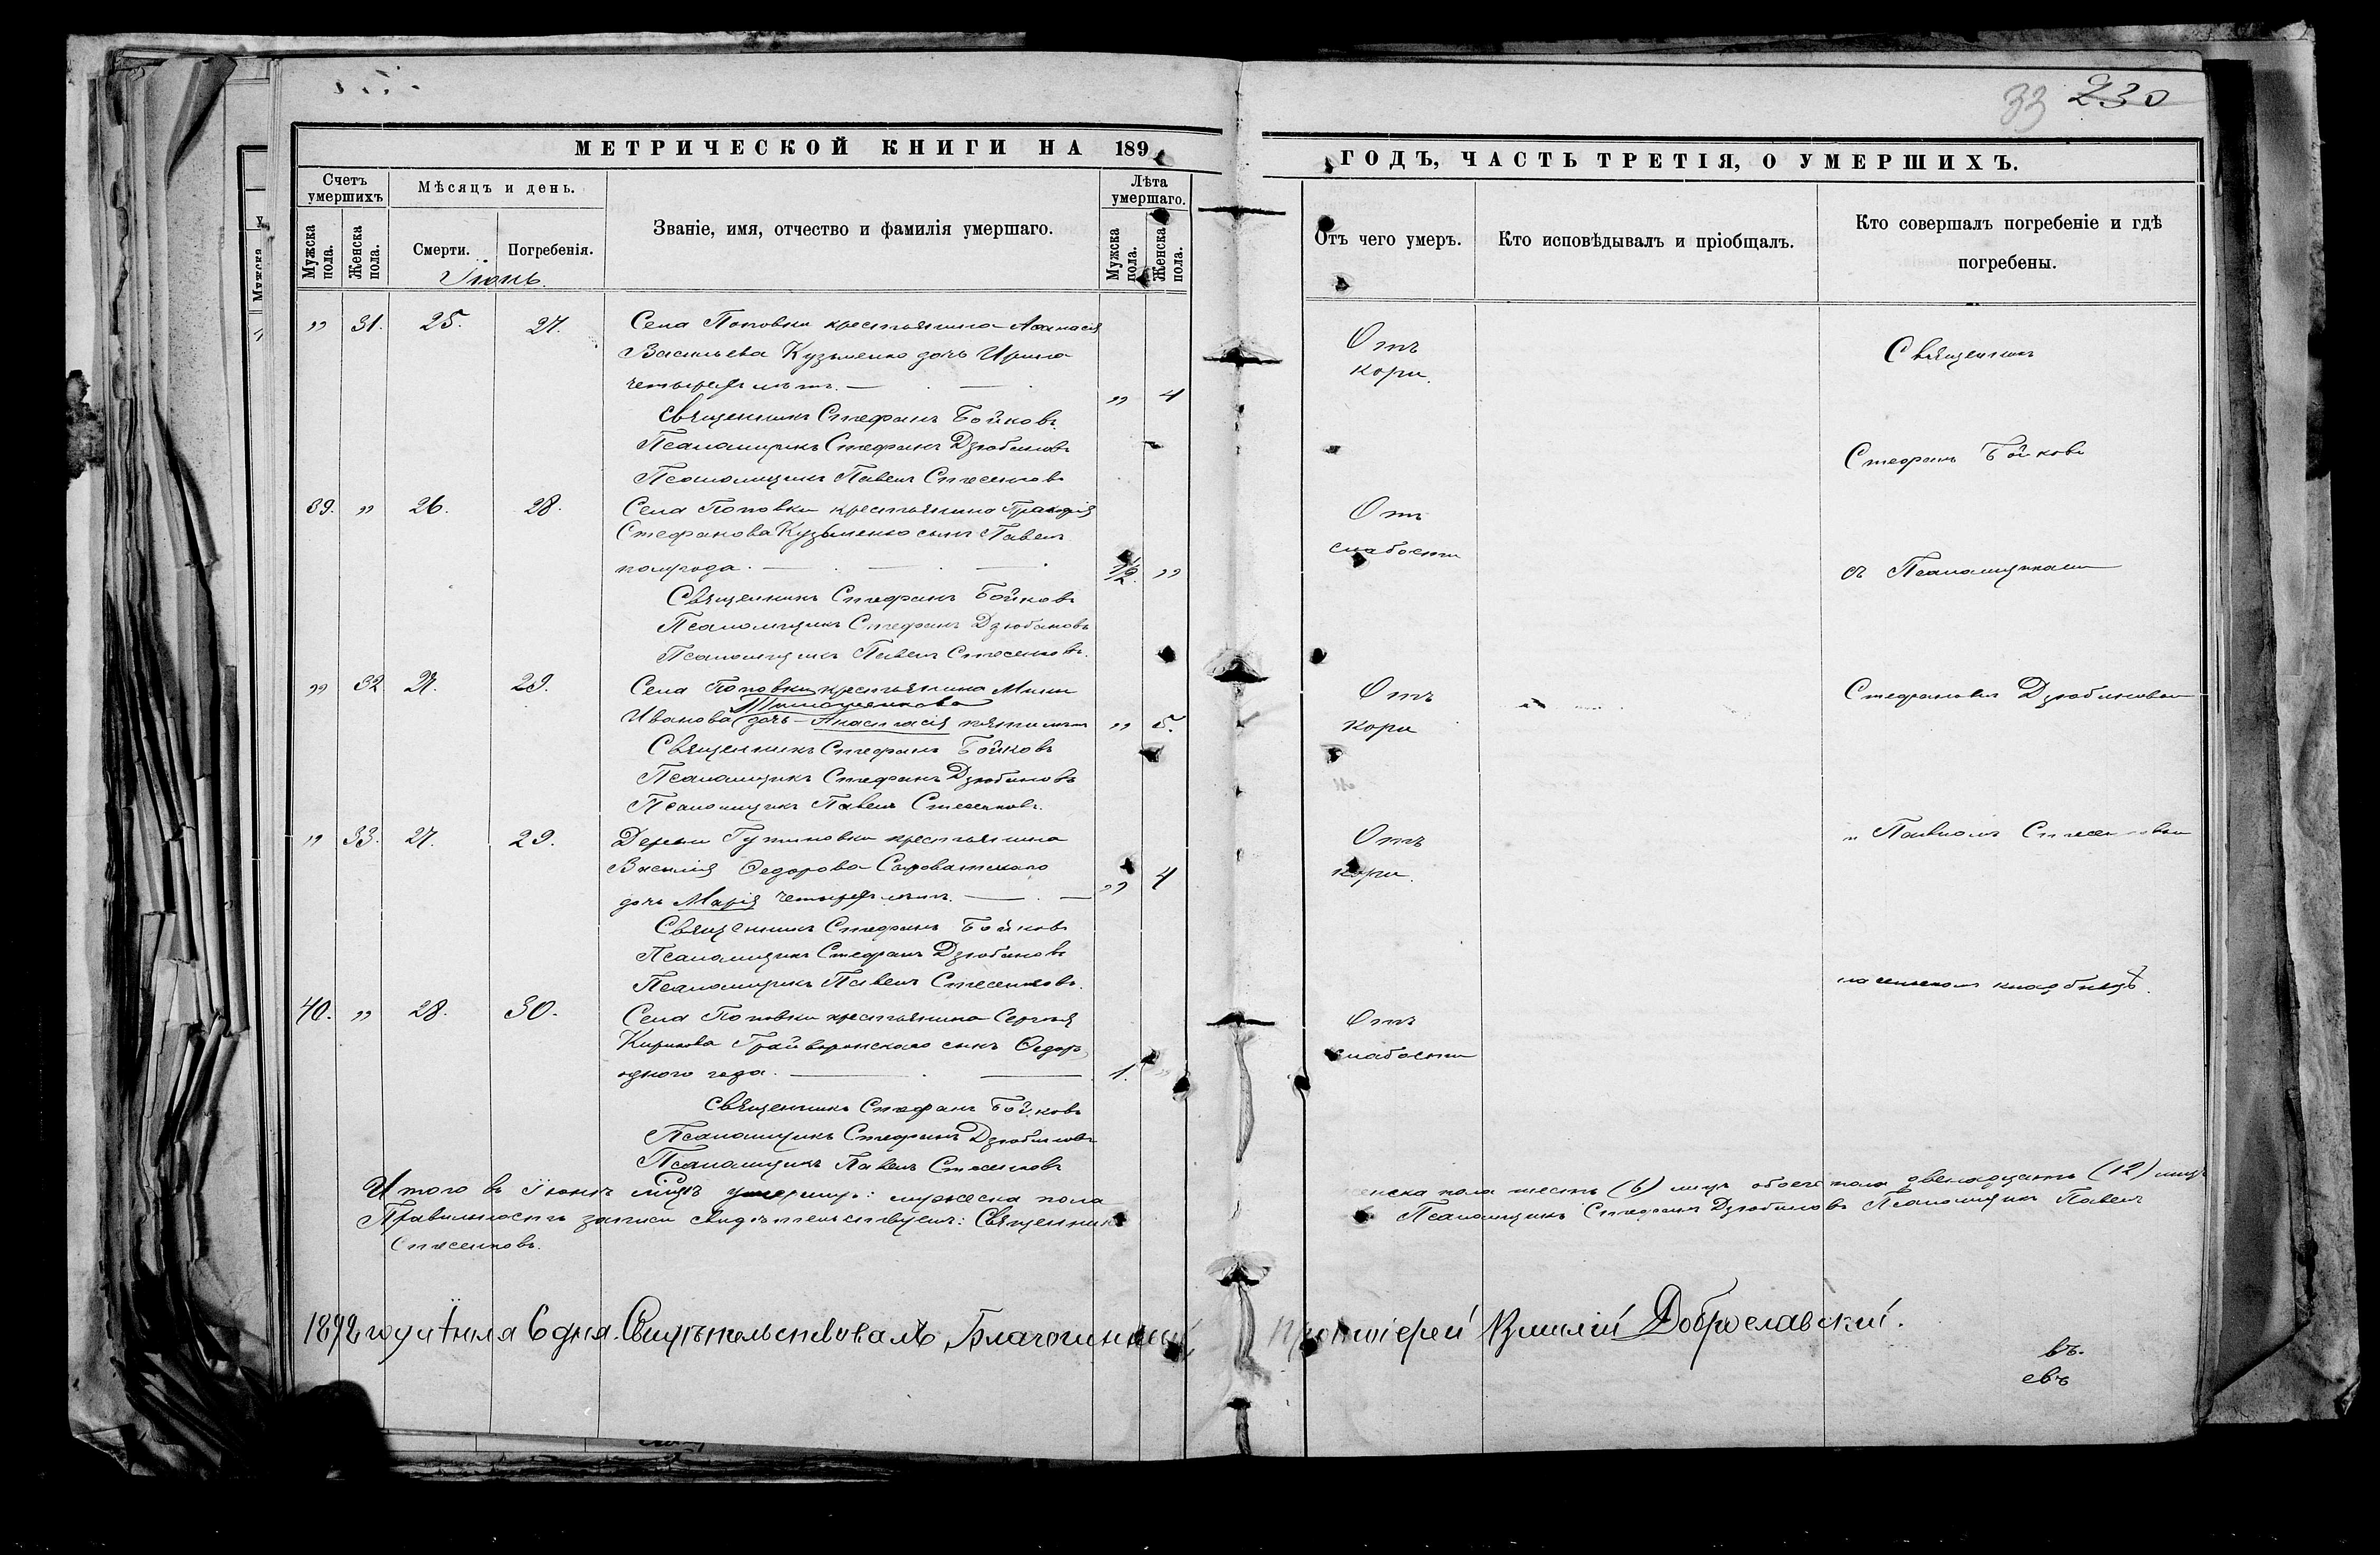 33 230
МЕТРИЧЕСКОЙ КНИГИ НА 189
ГОДЪ, ЧАСТЬ ТРЕТІЯ, О УМЕРШИХЪ.
Счетъ умершихъ
Мѣсяцъ и день.
Званіе, имя, отчество и фамилія умершаго.
Лѣта умершаго.
Мужска пола.
Женска пола.
Смерти.
Погребенія.
Мужска пола.
Женска пола.
Отъ чего умеръ.
Кто исповѣдывалъ и пріобщалъ.
Кто совершалъ погребеніе и гдѣ погребены.
Іюнь.
" 31. 25. 27. Села Поповки крестьянина Аѳанасія
Васильева Кузьменко дочь Ирина
четырехъ лѣтъ. " 4
Отъ
кори.
Священникъ Стефанъ Бойковъ
Псаломщикъ Стефанъ Дзюбановъ
Псаломщикъ Павелъ Стесенковъ
39. " 26. 28. Села Поповки крестьянина
Стефанова Кузьменко сынъ Павелъ
полугода. 1/2. "
Отъ
слабости
Священникъ Стефанъ Бойковъ
Псаломщикъ Стефанъ Дзюбановъ
Псаломщикъ Павелъ Стесенковъ.
" 32 27. 29. Села Поповки крестьянина
Иванова дочь Анастасія пяти лѣтъ " 5.
Отъ
кори
Священникъ Стефанъ Бойковъ
Псаломщикъ Стефанъ Дзюбановъ
Псаломщикъ Павелъ Стесенковъ.
" 33. 27. 29. Дерьвни крестьянина
Василія Ѳедорова Сыроватскаго
дочь Марія четырехъ лѣтъ. " 4
Отъ
кори.
Священникъ Стефанъ Бойковъ
Псаломщикъ Стефанъ Дзюбановъ
Псаломщикъ Павелъ Стесенковъ.
40. " 28. 30. Села Поповки крестьянина Сергѣя
Кирилова Грайворонскаго сынъ Ѳедоръ
одного года. 1. "
Отъ
слабости
Священникъ Стефанъ Бойковъ
Псаломщикъ Стефанъ Дзюбановъ
Псаломщикъ Павелъ Стесенковъ
Священникъ
Стефанъ Бойковъ
съ Псаломщиками
Стефаномъ Дзюбановымъ
и Павломъ Стесенковымъ
на сельскомъ кладбищѣ.
Итого въ Іюнѣ м-цѣ умерших: мужеска пола
женска пола шесть (6) лицъ обоего пола двенадцать (12) лицъ
Правильность записи свидѣтельствуемъ: Священникъ
Псаломщикъ Стефанъ Дзюбановъ Псаломщикъ Павелъ
Стесенковъ.
1892 года Іюля 6 дня. Свидѣтельствовалъ Благочинный Протоіерей Доброславскій.
въ.
евъ